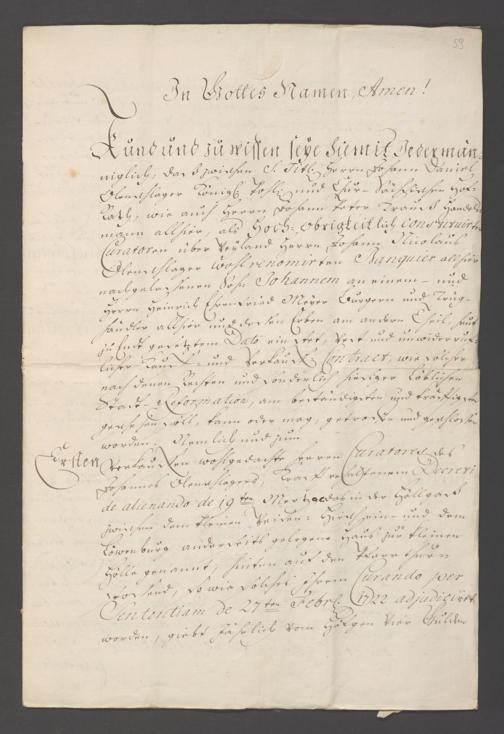 59
In Gottes Namen, Amen!
Kund und zu wissen seye hiemit Jedermän-
niglich, daß zwischen S. Titl. Herrn Johann Daniel
Olenschlager Königl. Pohln. und Chur-Sächsischen Hof-
Rath, wie auch Herrn Johann Peter Handels-
mann allhier, als Hoch-Obrigkeitlich constituirten
Curatoren über Weyland Herrn Johann Nicolaus
Olenschlager wohlrenomirten Banquier allhier
nachgelassenen Sohn Johannem an einem- und
Herrn Heinrich Ehrenfried Meyer Burgern und
händler allhier und dessen Erben am andern Theil, heut
zu Endt gesetztem Dato ein stet, Vest und unwiderruf-
licher Kauf- und Verkaufs Contract, wie solcher
nach denen Rechten und sonderlich hiesiger Löblichen
Stadt-Reformation, am beständigsten und kräfftigsten
geschehen soll, kann oder mag, getroffen und geschlossen
worden, Nemlich und zum
Ersten Verkauffen wohlgedachte Herren Curatores des
Johannes Olenschlagers, Krafft erhaltenem Decreti
de alienando de 19ten Mertz das in der Höllgaß
zwischen dem kleinen und dem
Löwenburg anderseits gelegene Hauß zur kleinen
Hölle genannt, hinten auf den Pfarrthurn
stosend, so wie solches ihrem Curando per
Sententiam de 27ten Febr. 1722 adjudicirt
worden, giebt Jährlich vom vier Gulden